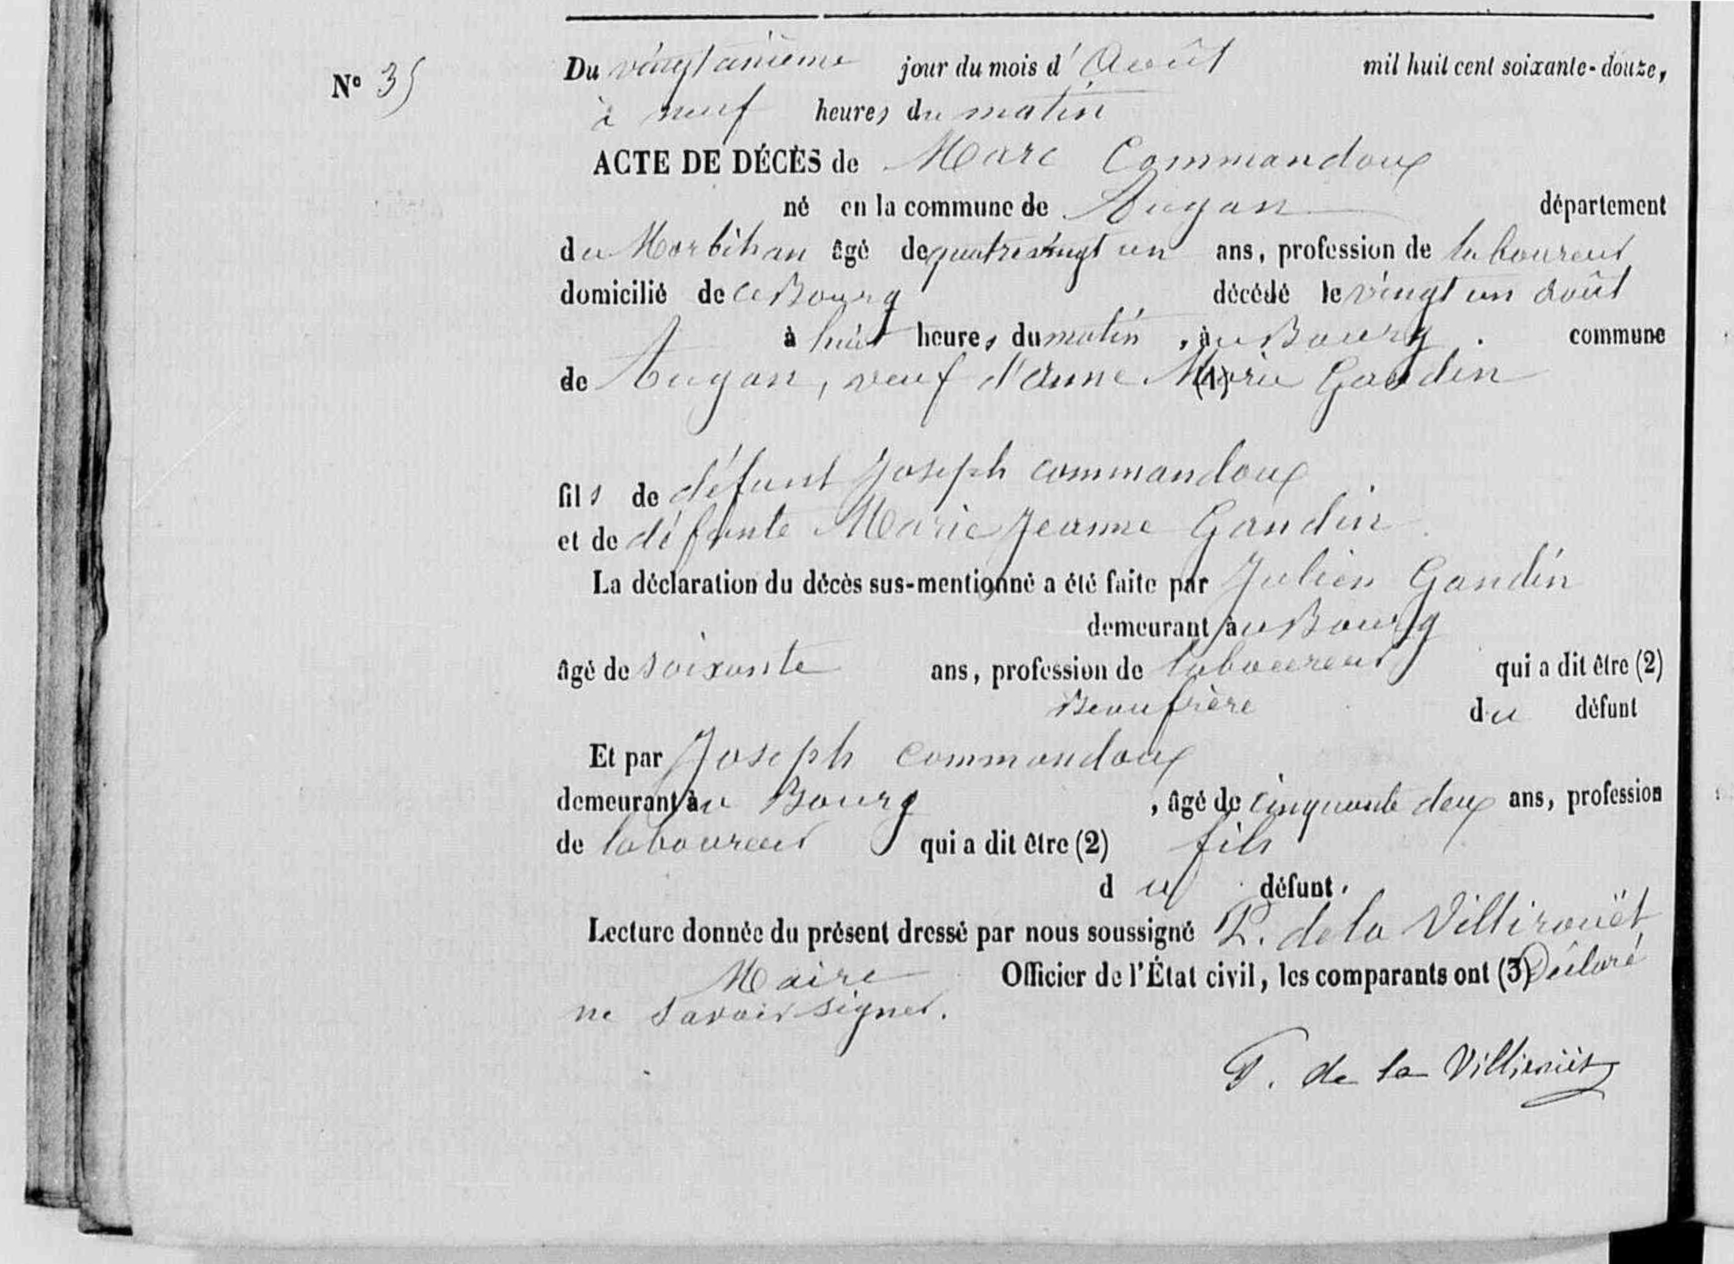 Nº 35
Du vingt unième jour du mois d'Août mil huit cent soixante-douze,
à neuf heures du matin
ACTE DE DÉCÈS de Marc Commandoux
né en la commune de Augan département
du Morbihan âgé de quatre vingt un ans, profession de laboureur
domicilié de ce Bourg décédé le vingt un août
à huit heures du matin, au Bourg. commune
de Augan, veuf d'anne Marie Gaudin (1)
fils de défunt Joseph commandoux
et de défunte Marie Jeanne Gaudin
La déclaration du décès sus-mentionné a été faite par Julien Gaudin
demeurant au Bourg
âgé de soixante ans, profession de laboureur qui a dit être (2)
Beaufrère du défunt
Et par Joseph commandoux
demeurant au Bourg, âgé de cinquante deux ans, profession
de laboureur qui a dit être (2) fils
du défunt.
Lecture donnée du présent dressé par nous soussigné P. de la Villirouët
Maire Officier de l'État civil, les comparants ont (3) Déclaré
ne savoir signer.
P. de la Villirouët